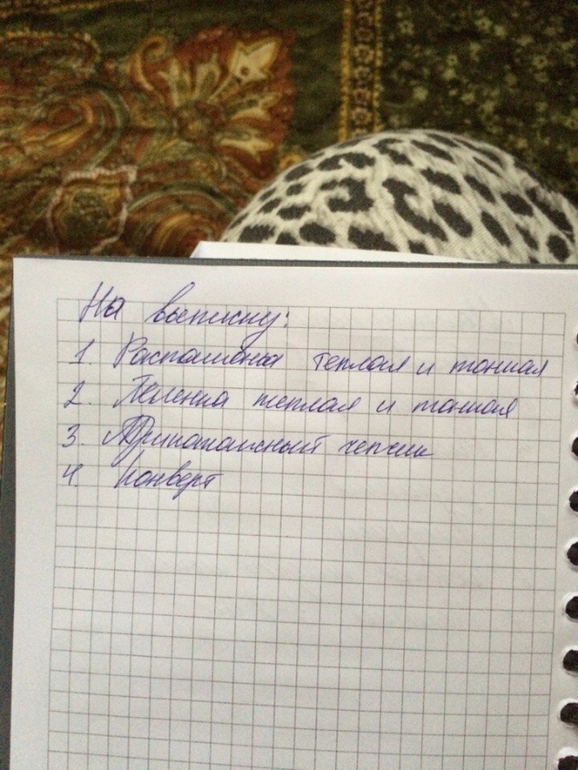 На выписку:
1. Распашонка теплая и тонкая
2. Пеленка теплая и тонкая
3. Трикотажный чепчик
4. Конверт